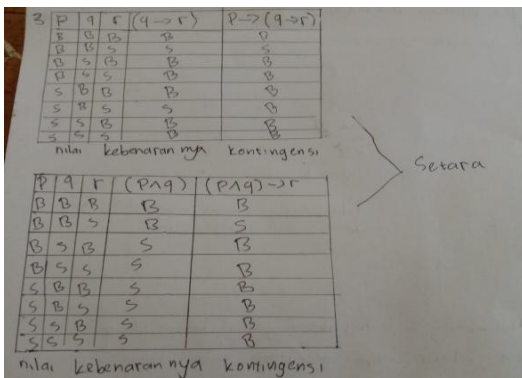 3 P q r (q → r) P → (q → r)
B B B B B
B B S S S
B S B B B
B S S B B
S B B B B
S B S S B
S S B B B
S S S B B
nilai kebenaran nya kontingensi
Setara
P q r (P∧q) (P∧q) → r
B B B B B
B B S B S
B S B S B
B S S S B
S B B S B
S B S S B
S S B S B
S S S S B
nilai kebenaran nya kontingensi